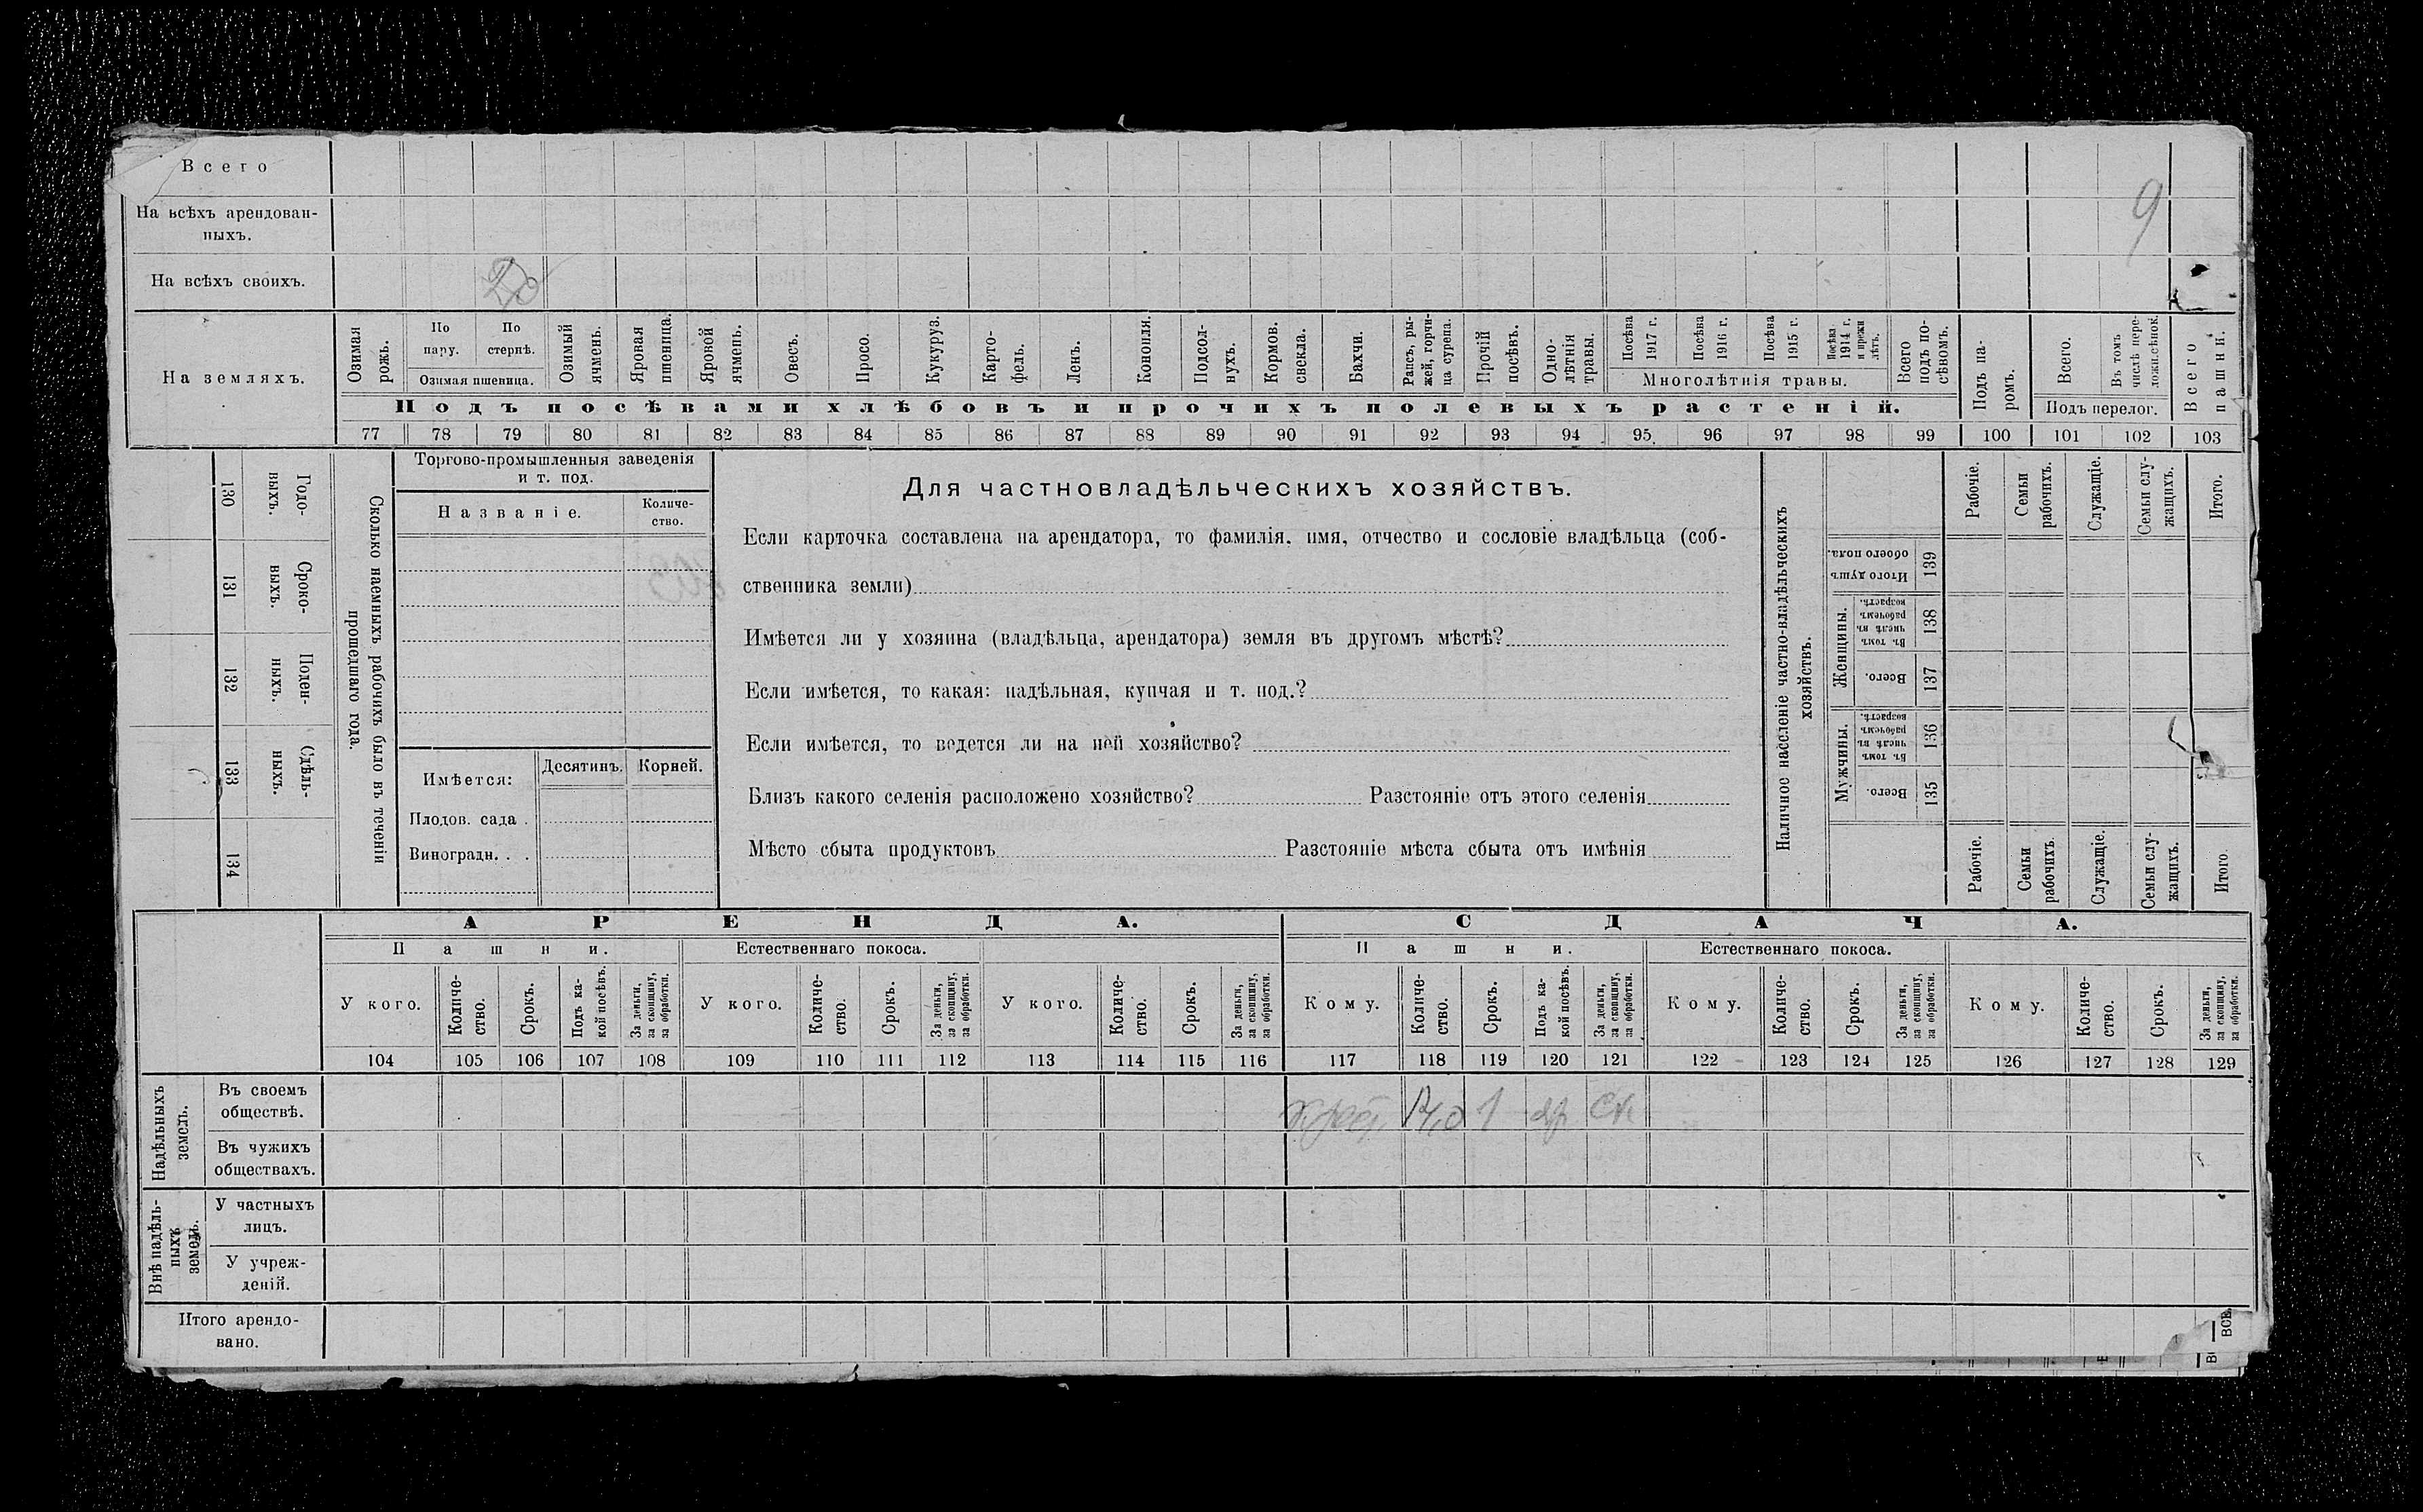 Всего
На всѣхъ арендован-
ныхъ.
9
На всѣхъ своихъ.
На земляхъ.
Озимая рожь.
По пару.
По стернѣ.
Озимая пшеница.
Озимый ячмень.
Яровая пшеница.
Яровой ячмень.
Овесъ.
Просо.
Кукуруз.
Карто-
фель.
Ленъ.
Конопля.
Подсол-
нухъ.
Кормов. свекла.
Бахчи.
Рапсъ, ры-
жей, горчи-
ца сурепа.
Прочій посѣвъ.
Одно-
лѣтнія травы.
Посѣва 1917 г.
Посѣва 1916 г.
Посѣва 1915 г.
Посѣва 1914 г. и прежн лѣтъ.
Многолѣтнія травы.
Всего подъ по-
сѣвомъ.
Подъ па-
ромъ.
Всего.
Въ томъ числѣ пере-
ложн.сѣнок.
Подъ перелог.
Всего пашни.
Подъ посѣвами хлѣбовъ и прочихъ полевыхъ растеній.
77 78 79 80 81 82 83 84 85 86 87 88 89 90 91 92 93 94 95 96 97 98 99 100 101 102 103
130 Годо-
выхъ.
131 Сроко-
выхъ.
132 Поден-
ныхъ.
133 Сдѣль-
ныхъ.
134
Сколько наемныхъ рабочихъ было въ теченіи
прошедшаго года.
Торгово-промышленныя заведенія
и т. под.
Названіе.
Количе-
ство.
Имѣется:
Десятинъ.
Корней.
Плодов. сада .
Виноградн. . .
Для частновладѣльческихъ хозяйствъ.
Если карточка составлена на арендатора, то фамилія, имя, отчество и сословіе владѣльца (соб-
ственника земли)
Имѣется ли у хозяина (владѣльца, арендатора) земля въ другомъ мѣстѣ?
Если имѣется, то какая: надѣльная, купчая и т. под.?
Если имѣется, то ведется ли на ней хозяйство?
Близъ какого селенія расположено хозяйство? Разстояніе отъ этого селенія
Мѣсто сбыта продуктовъ Разстояніе мѣста сбыта отъ имѣнія
Наличное населеніе частно-владѣльческихъ
хозяйствъ.
Рабочіе.
Семьи рабочихъ.
Служащіе.
Семьи слу-
жащихъ.
Итого.
Итого душъ обоего пола. 139
Женщины.
Въ томъ числѣ въ рабочемъ возрастѣ. 138
Всего. 137
Мужчины.
Въ томъ числѣ въ рабочемъ возрастѣ. 136
Всего. 135
Рабочіе.
Семьи рабочихъ.
Служащіе.
Семьи слу-
жащихъ.
Итого
АРЕНДА.
СДАЧА.
Пашни.
Естественнаго покоса.
Пашни.
Естественнаго покоса.
У кого.
Количе-
ство.
Срокъ.
Подъ ка-
кой посѣвъ.
За деньги, за скопщину, за обработки.
У кого.
Количе-
ство.
Срокъ.
За деньги, за скопщину, за обработки.
У кого.
Количе-
ство.
Срокъ.
За деньги, за скопщину, за обработки.
Кому.
Количе-
ство.
Срокъ.
Подъ ка-
кой посѣвъ.
За деньги, за скопщину, за обработки.
Кому.
Количе-
ство.
Срокъ.
За деньги, за скопщину, за обработки.
Кому.
Количе-
ство.
Срокъ.
За деньги, за скопщину, за обработки.
104 105 106 107 108 109 110 111 112 113 114 115 116 117 118 119 120 121 122 123 124 125 126 127 128 129
Надѣльныхъ земель.
Въ своемъ
обществѣ.
1
Въ чужихъ
обществахъ.
Внѣ надѣль-
ныхъ земель.
У частныхъ
лицъ.
У учреж-
деній.
Итого арендо-
вано.